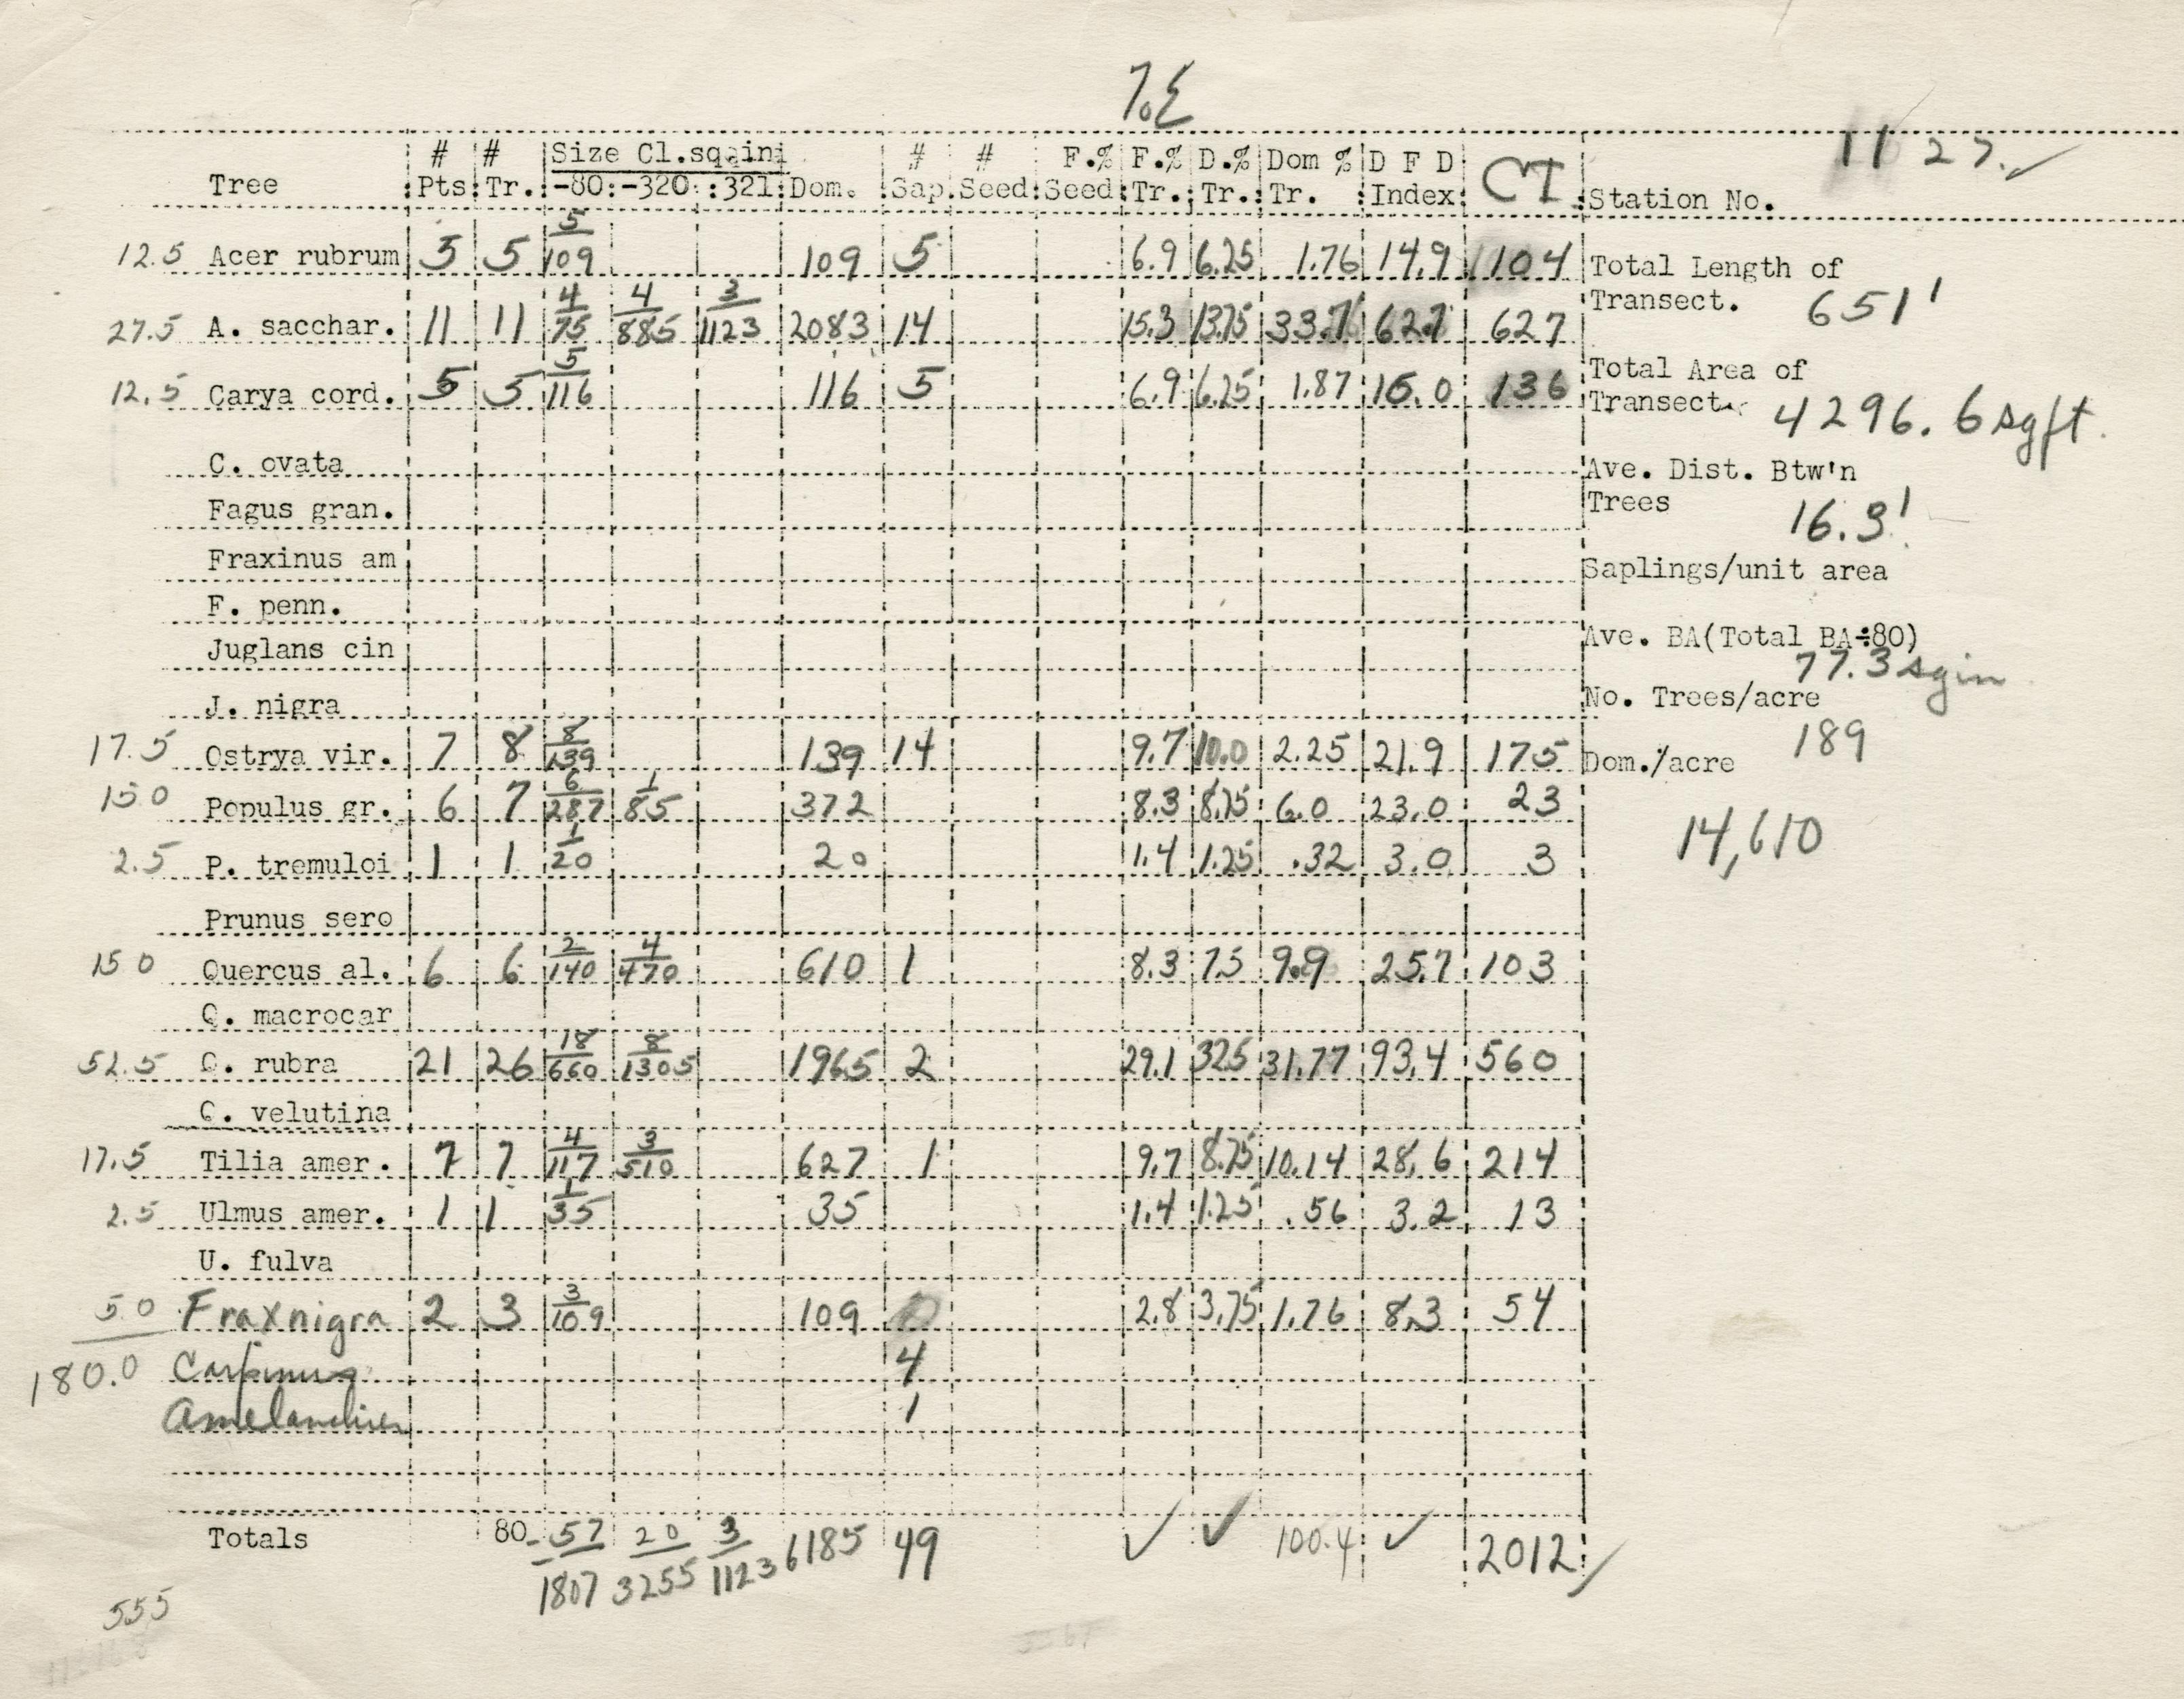 # # Size Cl.sqain # # F.% F.% D.% Dom % D F D CT 11 27.
Tree Pts Tr. -80: -320: :321: Dom. Sap. Seed: Seed: Tr. Tr. Tr. Index Station No.
12.5 Acer rubrum 5 5 5/109 109 5 6.9 6.25 1.76 14.9 104 Total Length of
Transect. 651'
27.5 A. sacchar. 11 11 4/75 4/885 3/1123 2083 14 15.3 13.75 33.7 62.7 627
Total Area of
12.5 Carya cord. 5 5 5/116 116 5 6.9 6.25 1.87 15.0 136 Transect. 4296.6 sqft.
C. ovata
Ave. Dist. Btw'n
Fagus gran. Trees 16.3'
Fraxinus am Saplings/unit area
F. penn.
Juglans cin Ave. BA(Total BA÷80)
77.3 sqin
J. nigra No. Trees/acre
189
17.5 Ostrya vir. 7 8 8/139 139 14 9.7 10.0 2.25 21.9 175 Dom./acre
15 0 Populus gr. 6 7 6/287 1/85 372 8.3 8.75 6.0 23.0 23
14,610
2.5 P. tremuloi 1 1 1/20 20 1.4 1.25 .32 3.0 3
Prunus sero
15 0 Quercus al. 6 6 2/140 4/470 610 1 8.3 7.5 9.9 25.7 103
Q. macrocar
52.5 Q. rubra 21 26 18/660 8/1305 1965 2 29.1 32.5 31.77 93.4 560
Q. velutina
17.5 Tilia amer. 7 7 4/117 3/510 627 1 9.7 8.75 10.14 28.6 214
2.5 Ulmus amer. 1 1 1/35 35 1.4 1.25 .56 3.2 13
U. fulva
5 0 Frax nigra 2 3 3/109 109 2.8 3.75 1.76 8.3 54
180.0 Carpinus 4
Amelanchier 1
Totals 80 57/1807 20/3255 3/1123 6185 49 ✓ ✓ 100.4 ✓ 2012
555